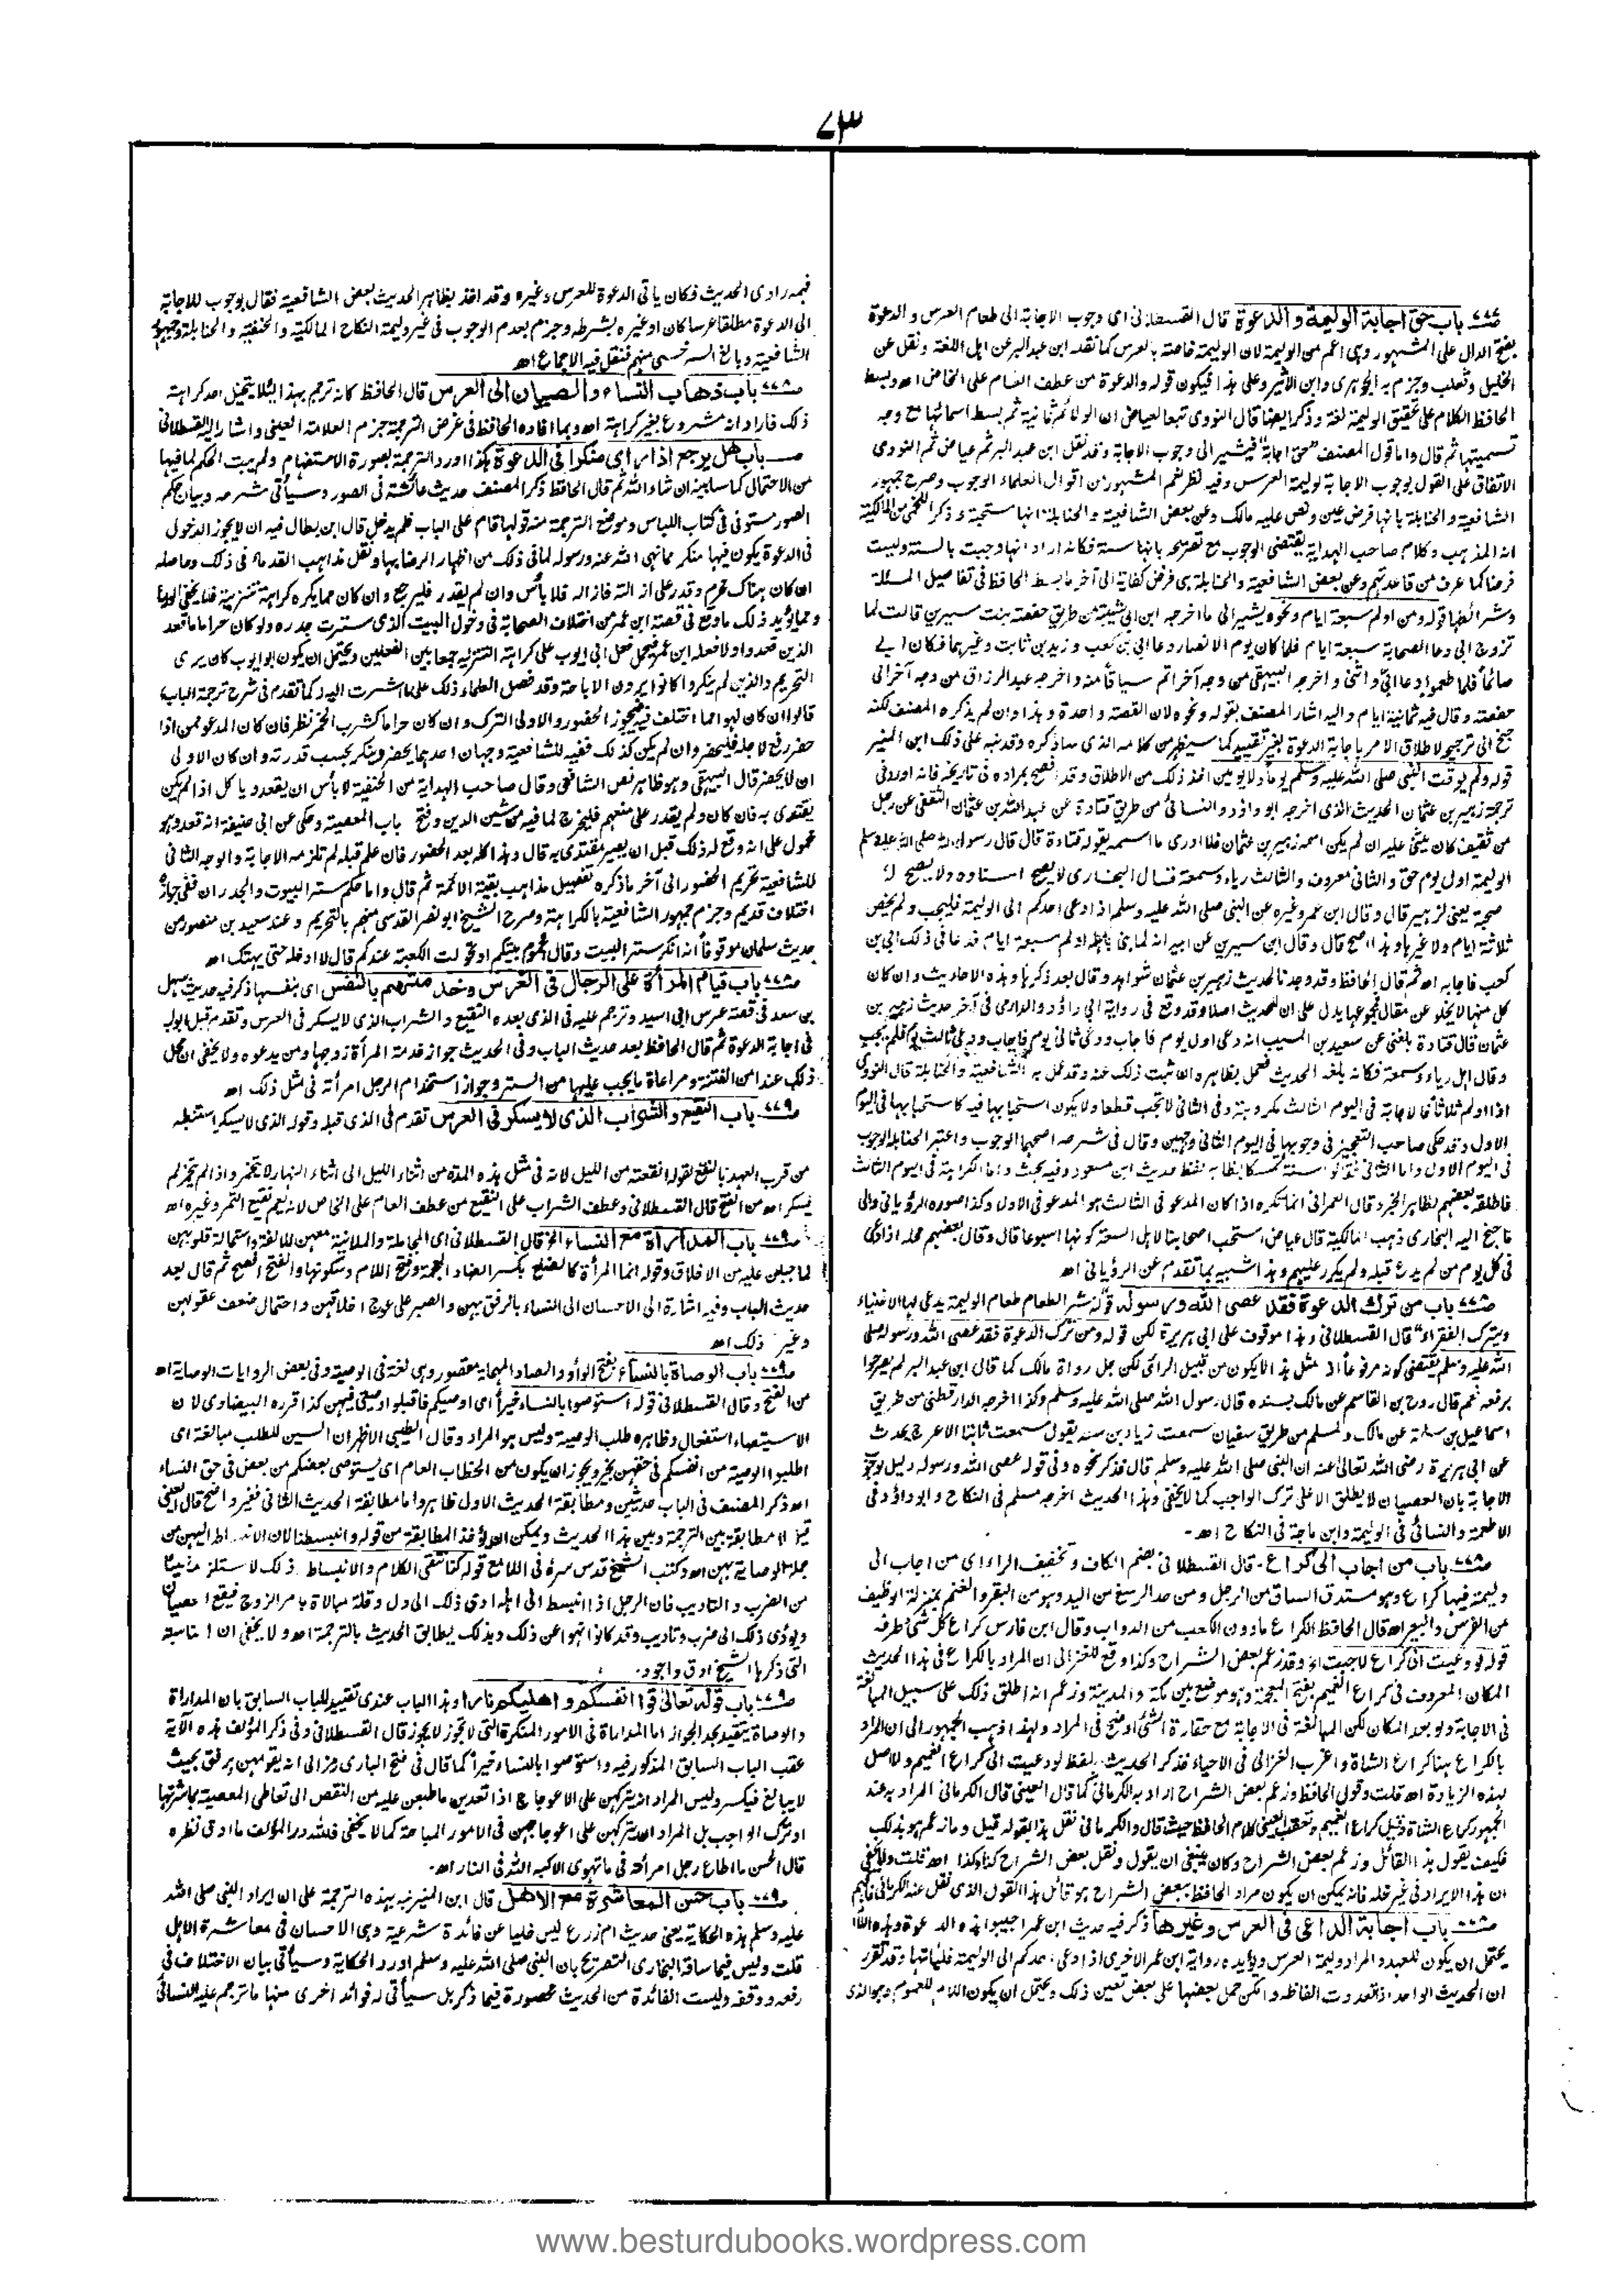 ٧٣
باب حق اجابة الوليمة والدعوة قال القسطلانى اى وجوب الاجابة الى طعام العرس والدعوة
بفتح الدال على المشهور وہى اعم من الوليمة لان الوليمة خاصة بالعرس كما نقله ابن عبدالبر عن اہل اللغة ونقل عن
الخليل وثعلب وجزم بہ الجوہرى وابن الأثير وعلى ہذا فيكون قوله والدعوة من عطف العام على الخاص اھ وبسط
الحافظ الكلام على تحقيق الوليمة لغة وذكر ايضا قال النووى تبعا لعياض ان الولائم ثمانية ثم بسط اسمائہا مع وجہ
تسميتہا ثم قال واما قول المصنف حق اجابة فيشير الى وجوب الاجابة وقد نقل ابن عبد البر ثم عياض ثم النووى
الاتفاق على القول بوجوب الاجابة لوليمة العرس وفيہ نظر نعم المشہور من اقوال العلماء الوجوب وصرح جمہور
الشافعية والحنابلة بانہا فرض عين ونص عليہ مالك وعن بعض الشافعية والحنابلة انہا مستحبة وذكر اللخمى من المالكية
انہ المذہب وكلام صاحب الہداية يقتضى الوجوب مع تصريحہ بانہا سنة فكانہ اراد انہا وجبت بالسنة وليست
فرضا كما عرف من قاعدتہم وعن بعض الشافعية والحنابلة ہى فرض كفاية الى آخر ما بسط الحافظ فى تفاصيل المسئلة
قولہ ومن اولم سبعة ايام ونحوہ يشير الى ما اخرجہ ابن ابى شيبة من طريق حفصة بنت سيرين قالت لما
تزوج ابى دعا الصحابة سبعة ايام فلما كان يوم الانصار دعا ابى بن كعب وزيد بن ثابت وغيرہما فكان ابى
صائما فلما طعموا دعا ابىّ واثنى واخرجہ البيہقى من وجہ آخر اتم سياقا منہ واخرجہ عبدالرزاق من وجہ آخر الى
حفصة وقال فيہ ثمانية ايام واليہ اشار المصنف بقولہ ونحوہ لان القصة واحدة وہذا وان لم يذكرہ المصنف لكنہ
جنح الى ترجيحہ لاطلاق الامر باجابة الدعوة بغير تقييد كما سيظہر من كلامہ الذى سأذكرہ وقد نبہ على ذلك ابن المنير
قولہ ولم يوقت النبى صلى اللہ عليہ وسلم يوما ولا يومين اخذ ذلك من الاطلاق وقد افصح بمرادہ فى تاريخہ فانہ اورد فى
ترجمة زہير بن عثمان الحديث الذى اخرجہ ابو داؤد والنسائى من طريق قتادة عن عبداللہ بن عثمان الثقفى عن رجل
من ثقيف كان يثنى عليہ ان لم يكن اسمہ زہير بن عثمان فلا ادرى ما اسمہ يقولہ قتادة قال قال رسول اللہ صلى اللہ عليہ وسلم
الوليمة اول يوم حق والثانى معروف والثالث رياء وسمعة قال البخارى لا يصح اسنادہ ولا يصح لہ
صحبة يعنى لزہير قال وقال ابن عمر وغيرہ عن النبى صلى اللہ عليہ وسلم اذا دعى احدكم الى الوليمة فليجب ولم يخص
ثلاثة ايام ولا غيرہا وہذا اصح قال وقال ابن سيرين عن ابيہ انہ لما بنى باہلہ اولم سبعة ايام فدعا فى ذلك ابى بن
كعب فاجابہ اھ ثم قال الحافظ وقد وجدنا لحديث زہير بن عثمان شواہد وقال بعد ذكرہا وہذہ الاحاديث وان كان
كل منہا لا يخلو عن مقال فمجموعہا يدل على ان للحديث اصلا وقد وقع فى رواية ابى داؤد والدارمى فى آخر حديث زہير بن
عثمان قال قتادة بلغنى عن سعيد بن المسيب انہ دعى اول يوم فاجاب ودعى ثانى يوم فاجاب ودعى ثالث يوم فلم يجب
وقال اہل رياء وسمعة فكانہ بلغہ الحديث فعمل بظاہرہ ان ثبت ذلك عنہ وقد عمل بہ الشافعية والحنابلة قال النووى
اذا اولم ثلاثا فالاجابة فى اليوم الثالث مكروہة وفى الثانى لا تجب قطعا ولا يكون استحبابہا فيہ كاستحبابہا فى اليوم
الاول وقد حكى صاحب التعجيز فى وجوبہا فى اليوم الثانى وجہين وقال فى شرحہ اصحہما الوجوب واعتبر الحنابلة الوجوب
فى اليوم الاول واما الثانى فقالوا سنة تمسكا بظاہر لفظ حديث ابن مسعود وفيہ بحث واما الكراہة فى اليوم الثالث
فاطلقہ بعضہم لظاہر الخبر وقال العمرانى انما تكرہ اذا كان المدعو فى الثالث ہو المدعو فى الاول وكذا صورہ الرؤيانى والى
ما جنح اليہ البخارى ذہب المالكية قال عياض استحب اصحابنا لاہل السعة كونہا اسبوعا قال وقال بعضہم محلہ اذا دعى
فى كل يوم من لم يدع قبلہ ولم يكرر عليہم وہذا شبيہ بما تقدم عن الرؤيانى اھ
باب من ترك الدعوة فقد عصى اللہ ورسولہ قولہ شر الطعام طعام الوليمة يدعى لہا الاغنياء
ويترك الفقراء قال القسطلانى وہذا موقوف على ابى ہريرة لكن قولہ ومن ترك الدعوة فقد عصى اللہ ورسولہ صلى
اللہ عليہ وسلم يقتضى كونہ مرفوعا اذ مثل ہذا لا يكون من قبيل الرأى لكن جل رواة مالك كما قال ابن عبدالبر لم يصرحوا
برفعہ نعم قال روح بن القاسم عن مالك بسندہ قال رسول اللہ صلى اللہ عليہ وسلم وكذا اخرجہ الدارقطنى من طريق
اسماعيل بن سلمة عن مالك ولمسلم من طريق سفيان سمعت زياد بن سعد يقول سمعت ثابتا الاعرج يحدث
عن ابى ہريرة رضى اللہ تعالىٰ عنہ ان النبى صلى اللہ عليہ وسلم قال فذكر نحوہ وفى قولہ عصى اللہ ورسولہ دليل لوجوب
الاجابة بان العصيان لا يطلق الا على ترك الواجب كما لا يخفى وہذا الحديث اخرجہ مسلم فى النكاح وابو داؤد فى
الاطعمة والنسائى فى الوليمة وابن ماجة فى النكاح اھ۔
باب من اجاب الى كراع ۔ قال القسطلانى بضم الكاف وتخفيف الراء اى من اجاب الى
وليمة فيہا كراع وہو مستدق الساق من الرجل ومن حد الرسغ من اليد وہو من البقر والغنم بمنزلة الوظيف
من الفرس والبعير اھ قال الحافظ الكراع مادون الكعب من الدواب وقال ابن فارس كراع كل شئ طرفہ
قولہ لو دعيت الى كراع لاجبت اھ وقد زعم بعض الشراح وكذا وقع للغزالى ان المراد بالكراع فى ہذا الحديث
المكان المعروف فى كراع الغميم بفتح المعجمة وہو موضع بين مكة والمدينة وزعم انہ اطلق ذلك على سبيل المبالغة
فى الاجابة ولو بعد المكان لكن المبالغة فى الاجابة مع حقارة الشئ اوضح فى المراد ولہذا ذہب الجمہور الى ان المراد
بالكراع ہنا كراع الشاة واغرب الغزالى فى الاحياء فذكر الحديث بلفظ لو دعيت الى كراع الغميم ولا اصل
لہذہ الزيادة اھ قلت وقول الحافظ وزعم بعض الشراح اراد بہ الكرمانى كما قال العينى قال الكرمانى المراد بہ عند
الجمہور كراع الشاة وقيل كراع الغميم وتعقب العينى كلام الحافظ حيث قال والكرمانى نقل ہذا بقولہ قيل وما زعم ہو بذلك
فكيف يقول ہذا القائل وزعم بعض الشراح وكان ينبغى ان يقول ونقل بعض الشراح كذا وكذا اھ قلت ولا يخفى
ان ہذا الايراد فى غير محلہ فانہ يمكن ان يكون مراد الحافظ ببعض الشراح ہو قائل ہذا القول الذى نقل عنہ الكرمانى فافہم
باب اجابة الداعى فى العرس وغيرها ذكر فيہ حديث ابن عمر اجيبوا ہذہ الدعوة وہذہ اللام
يحتمل ان يكون للعہد والمراد وليمة العرس ويؤيدہ رواية ابن عمر الاخرى اذا دعى احدكم الى الوليمة فلياتہا وقد تقرر
ان الحديث الواحد اذا تعددت الفاظہ وامكن حمل بعضہا على بعض تعين ذلك ويحتمل ان يكون اللام للعموم وہو الذى
فہمہ راوى الحديث فكان ياتى الدعوة للعرس وغيرہ وقد اخذ بظاہر الحديث بعض الشافعية فقال بوجوب الاجابة
الى الدعوة مطلقا عرسا كان او غيرہ بشرطہ وجزم بعدم الوجوب فى غير وليمة النكاح المالكية والحنفية والحنابلة وجمہور
الشافعية وبالغ السرخسى منہم فنقل فيہ الاجماع اھ
باب ذهاب النساء والصبيان الى العرس قال الحافظ كانہ ترجم بہذا لئلا يتخيل احد كراہة
ذلك فاراد انہ مشروع بغير كراہة اھ وبما افادہ الحافظ فى غرض الترجمة جزم العلامة العينى واشار اليہ القسطلانى
باب هل يرجع اذا رأى منكرا فى الدعوة ہكذا اورد الترجمة بصورة الاستفہام ولم يبت الحكم لما فيہا
من الاحتمال كما سابينہ ان شاء اللہ ثم قال الحافظ ذكر المصنف حديث عائشة فى الصور وسيأتى شرحہ وبيان حكم
الصور مستوفى فى كتاب اللباس وموضع الترجمة منہ قولہا قام على الباب فلم يدخل قال ابن بطال فيہ انہ لا يجوز الدخول
فى الدعوة يكون فيہا منكر مما نہى اللہ عنہ ورسولہ لما فى ذلك من اظہار الرضا بہا ونقل مذاہب القدماء فى ذلك وحاصلہ
ان كان ہناك محرم وقدر على ازالتہ فازالہ فلا بأس وان لم يقدر فليرجع وان كان مما يكرہ كراہة تنزيہ فلا يخفى الورع
ومما يؤيد ذلك ما وقع فى قصة ابن عمر من اختلاف الصحابة فى دخول البيت الذى سترت جدرہ ولو كان حراما ما قعد
الذين قعدوا ولا فعلہ ابن عمر فيحمل فعل ابى ايوب على كراہة التنزيہ جمعا بين الفعلين ويحتمل ان يكون ابو ايوب كان يرى
التحريم والذين لم ينكروا كانوا يرون الاباحة وقد فصل العلماء ذلك على ما اشرت اليہ كما تقدم فى شرح ترجمة الباب
قالوا ان كان لہوا مما اختلف فيہ فيجوز الحضور والاولى الترك وان كان حراما كشرب الخمر نظر فان كان المدعو ممن اذا
حضر رفع لاجلہ فليحضر وان لم يكن كذلك ففيہ للشافعية وجہان احدہما يحضر وينكر بحسب قدرتہ وان كان الاولى
ان لا يحضر قال البيہقى وہو ظاہر نص الشافعى وقال صاحب الہداية من الحنفية لا بأس ان يقعد ويأكل اذا لم يكن
يقتدى بہ فان كان ولم يقدر على منعہم فليخرج لما فيہ من شين الدين وفتح باب المعصية وحكى عن ابى حنيفة انہ قعد وہو
محمول على انہ وقع لہ ذلك قبل ان يصير مقتدى بہ قال وہذا كلہ بعد الحضور فان علم قبلہ لم تلزمہ الاجابة والوجہ الثانى
للشافعية تحريم الحضور الى آخر ما ذكرہ تفصيل مذاہب بقية الائمة ثم قال واما حكم ستر البيوت والجدران ففى جوازہ
اختلاف قديم وجزم جمہور الشافعية بالكراہة وصرح الشيخ ابو نصر المقدسى منہم بالتحريم وعند سعيد بن منصور من
حديث سلمان موقوفا انہ انكر ستر البيت وقال أمحموم بيتكم او تحولت الكعبة عندكم قال لا ادخلہ حتى يہتك اھ
باب قيام المرأة على الرجال فى العرس وخدمتهم بالنفس اى بنفسہا ذكر فيہ حديث سہل
بن سعد فى قصة عرس ابى اسيد وترجم عليہ فى الذى بعدہ النقيع والشراب الذى لا يسكر فى العرس وتقدم قبل ابواب
فى اجابة الدعوة ثم قال الحافظ بعد حديث الباب وفى الحديث جواز خدمة المرأة زوجہا ومن يدعوہ ولا يخفى ان محل
ذلك عند امن الفتنة ومراعاة ما يجب عليہا من الستر وجواز استخدام الرجل امرأتہ فى مثل ذلك اھ
باب النقيع والشراب الذى لا يسكر فى العرس تقدم فى الذى قبلہ وقولہ الذى لا يسكر استنبطہ
من قرب العہد بالنقع لقولہ انقعتہ من الليل لانہ فى مثل ہذہ المدة من اثناء الليل الى اثناء النہار لا يتخمر واذا لم يتخمر لم
يسكر اھ من الفتح قال القسطلانى وعطف الشراب على النقيع من عطف العام على الخاص لانہ يعم نقيع التمر وغيرہ اھ
باب المدارأة مع النساء الخ قال القسطلانى اى المجاملة والملاينة معہن للالفة واستمالة قلوبہن
لما جبلن عليہ من الاخلاق وقولہ انما المرأة كالضلع بكسر الضاد المعجمة وفتح اللام وسكونہا والفتح افصح ثم قال بعد
حديث الباب وفيہ اشارة الى الاحسان الى النساء بالرفق بہن والصبر على عوج اخلاقہن واحتمال ضعف عقولہن
وغير ذلك اھ
باب الوصاة بالنساء بفتح الواو والصاد المہملة مقصور وہى لغة فى الوصية وفى بعض الروايات الوصاية اھ
من الفتح وقال القسطلانى قولہ استوصوا بالنساء خيرا اى اوصيكم فاقبلوا وصيتى فيہن كذا قررہ البيضاوى لان
الاستيصاء استفعال وظاہرہ طلب الوصية وليس ہو المراد وقال الطيبى الاظہر ان السين للطلب مبالغة اى
اطلبوا الوصية من انفسكم فى حقہن بخير ويجوز ان يكون من الخطاب العام اى يستوصى بعضكم من بعض فى حق النساء
اھ ذكر المصنف فى الباب حديثين ومطابقة الحديث الاول ظاہر واما مطابقة الحديث الثانى فغير واضح قال العينى
لا مطابقة بين الترجمة وبين ہذا الحديث ويمكن ان تؤخذ المطابقة من قولہ وانبسطنا لان الانبساط اليہن من
جملة الوصاية بہن اھ وكتب الشيخ قدس سرہ فى اللامع قولہ كنا نتقى الكلام والانبساط ذلك لاستلزامہ
من الضرب والتاديب فان الرجل اذا انبسط الى اہلہ ادى ذلك الى دل وقلة مبالاة بامر الزوج فيقع عصيان
ويؤدى ذلك الى ضرب وتاديب وقد كانوا نہوا عن ذلك وبذلك يطابق الحديث بالترجمة اھ ولا يخفى ان المناسبة
التى ذكرہا الشيخ ادق واجود۔
باب قوله تعالى قوا انفسكم واهليكم نارا وہذا الباب عندى تقييد للباب السابق بان المداراة
والوصاة يتقيد بحد الجواز اما المداراة فى الامور المنكرة التى لا تجوز لا يجوز قال القسطلانى وفى ذكر المؤلف ہذہ الآية
عقب الباب السابق المذكور فيہ واستوصوا بالنساء خيرا كما قال فى فتح البارى رمز الى انہ يقومہن برفق بحيث
لا يبالغ فيكسر وليس المراد انہ يتركہن على الاعوجاج اذا تعدين ما طبعن عليہ من النقص الى تعاطى المعصية بمباشرتہا
او ترك الواجب بل المراد ان يتركہن على اعوجاجہن فى الامور المباحة كما لا يخفى فللہ در المؤلف ما ادق نظرہ
قال الحسن ما اطاع رجل امرأتہ فى ما تہوى الا كبہ اللہ فى النار اھ۔
باب حسن المعاشرة مع الاهل قال ابن المنير نبہ بہذہ الترجمة على ان ايراد النبى صلى اللہ
عليہ وسلم ہذہ الحكاية يعنى حديث ام زرع ليس خليا عن فائدة شرعية وہى الاحسان فى معاشرة الاہل
قلت وليس فيما ساقہ البخارى التصريح بان النبى صلى اللہ عليہ وسلم اورد الحكاية وسيأتى بيان الاختلاف فى
رفعہ ووقفہ وليست الفائدة من الحديث محصورة فيما ذكر بل سيأتى لہ فوائد اخرى منہا ما ترجم عليہ النسائى
www.besturdubooks.wordpress.com